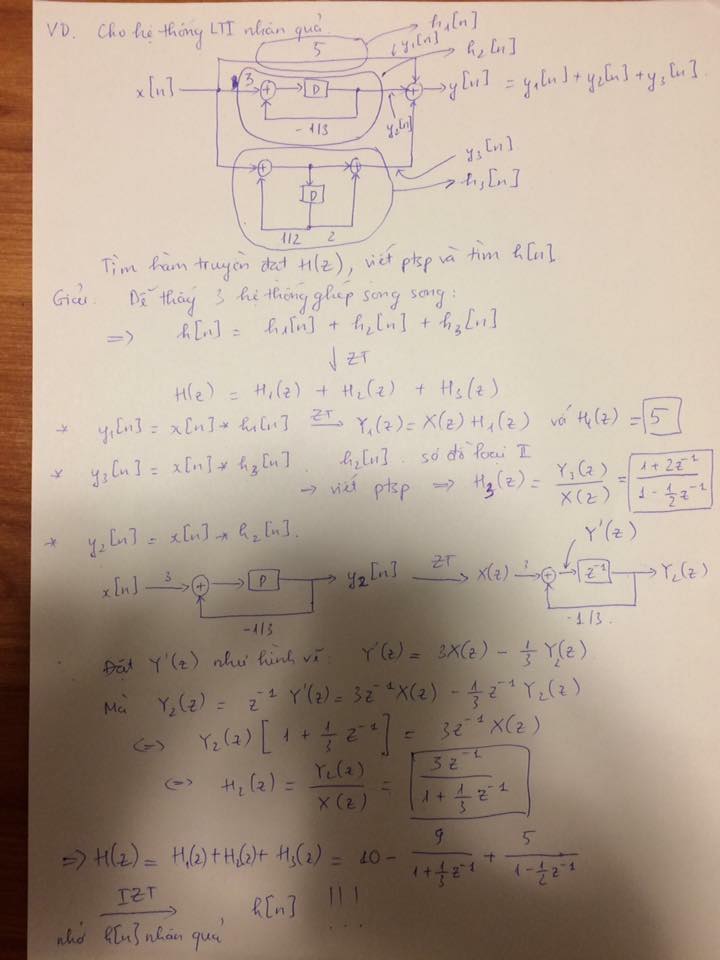 VD. Cho hệ thống LTI nhân quả.
5
h1[n]
y1[n]
h2[n]
x[n] 3 + D + y[n] = y1[n] + y2[n] + y3[n]
-1/3
y2[n]
y3[n]
+ +
h3[n]
D
1/2 2
Tìm hàm truyền đạt H(z), viết ptsp và tìm h[n].
Giải. Dễ thấy 3 hệ thống ghép song song:
=> h[n] = h1[n] + h2[n] + h3[n]
↓ ZT
H(z) = H1(z) + H2(z) + H3(z)
* y1[n] = x[n] * h1[n] ZT→ Y1(z) = X(z) H1(z) và H1(z) = 5
* y3[n] = x[n] * h3[n] . h2[n] . sơ đồ loại II
→ viết ptsp => H3(z) = Y3(z)/X(z) = (1 + 2z⁻¹)/(1 - 1/2 z⁻¹)
* y2[n] = x[n] * h2[n].
Y'(z)
x[n] 3 + D y2[n] ZT→ X(z) 3 + z⁻¹ Y2(z)
-1/3 -1/3
Đặt Y'(z) như hình vẽ. Y'(z) = 3X(z) - 1/3 Y2(z)
Mà Y2(z) = z⁻¹ Y'(z) = 3z⁻¹ X(z) - 1/3 z⁻¹ Y2(z)
<=> Y2(z) [1 + 1/3 z⁻¹] = 3z⁻¹ X(z)
<=> H2(z) = Y2(z)/X(z) = 3z⁻¹/(1 + 1/3 z⁻¹)
=> H(z) = H1(z) + H2(z) + H3(z) = 10 - 9/(1 + 1/3 z⁻¹) + 5/(1 - 1/2 z⁻¹)
IZT→ h[n] !!!
nhớ h[n] nhân quả